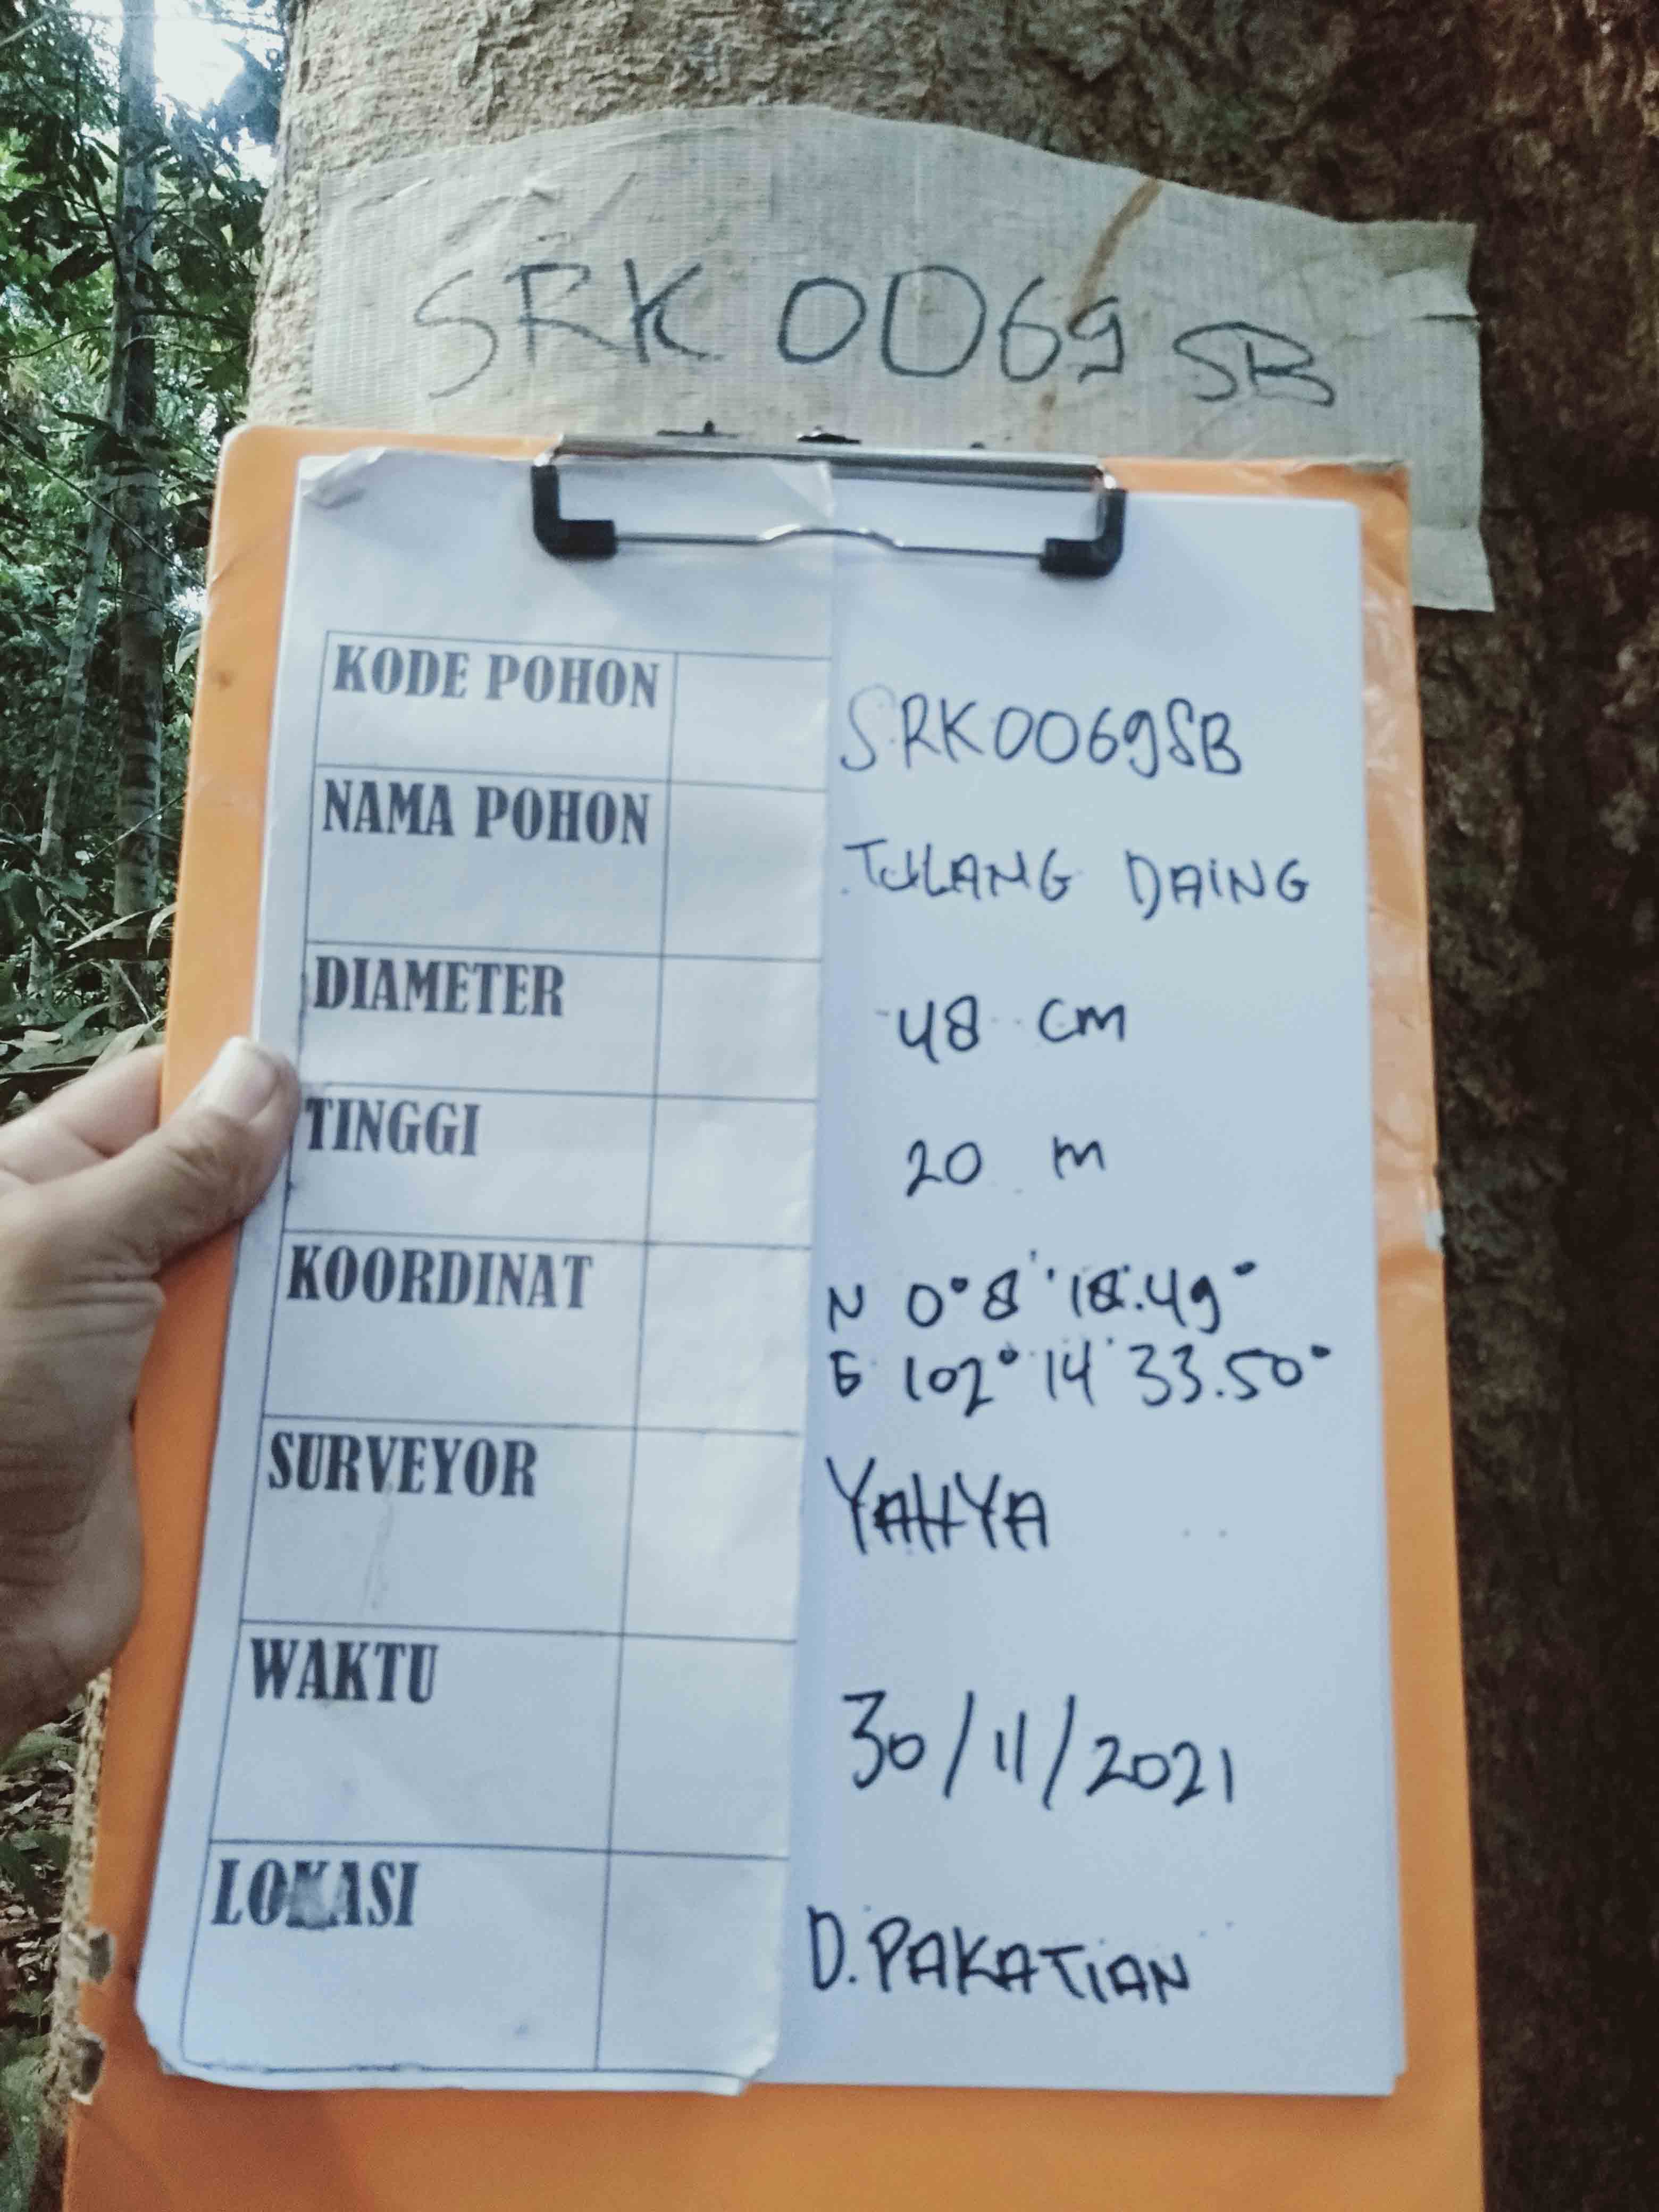 SRK 0069 SB
KODE POHON SRK0069SB
NAMA POHON TULANG DAING
DIAMETER 48 cm
TINGGI 20 m
KOORDINAT N 0°8'18.49°
E 102°14'33.50°
SURVEYOR YAHYA
WAKTU 30/11/2021
LOKASI D.PAKATIAN